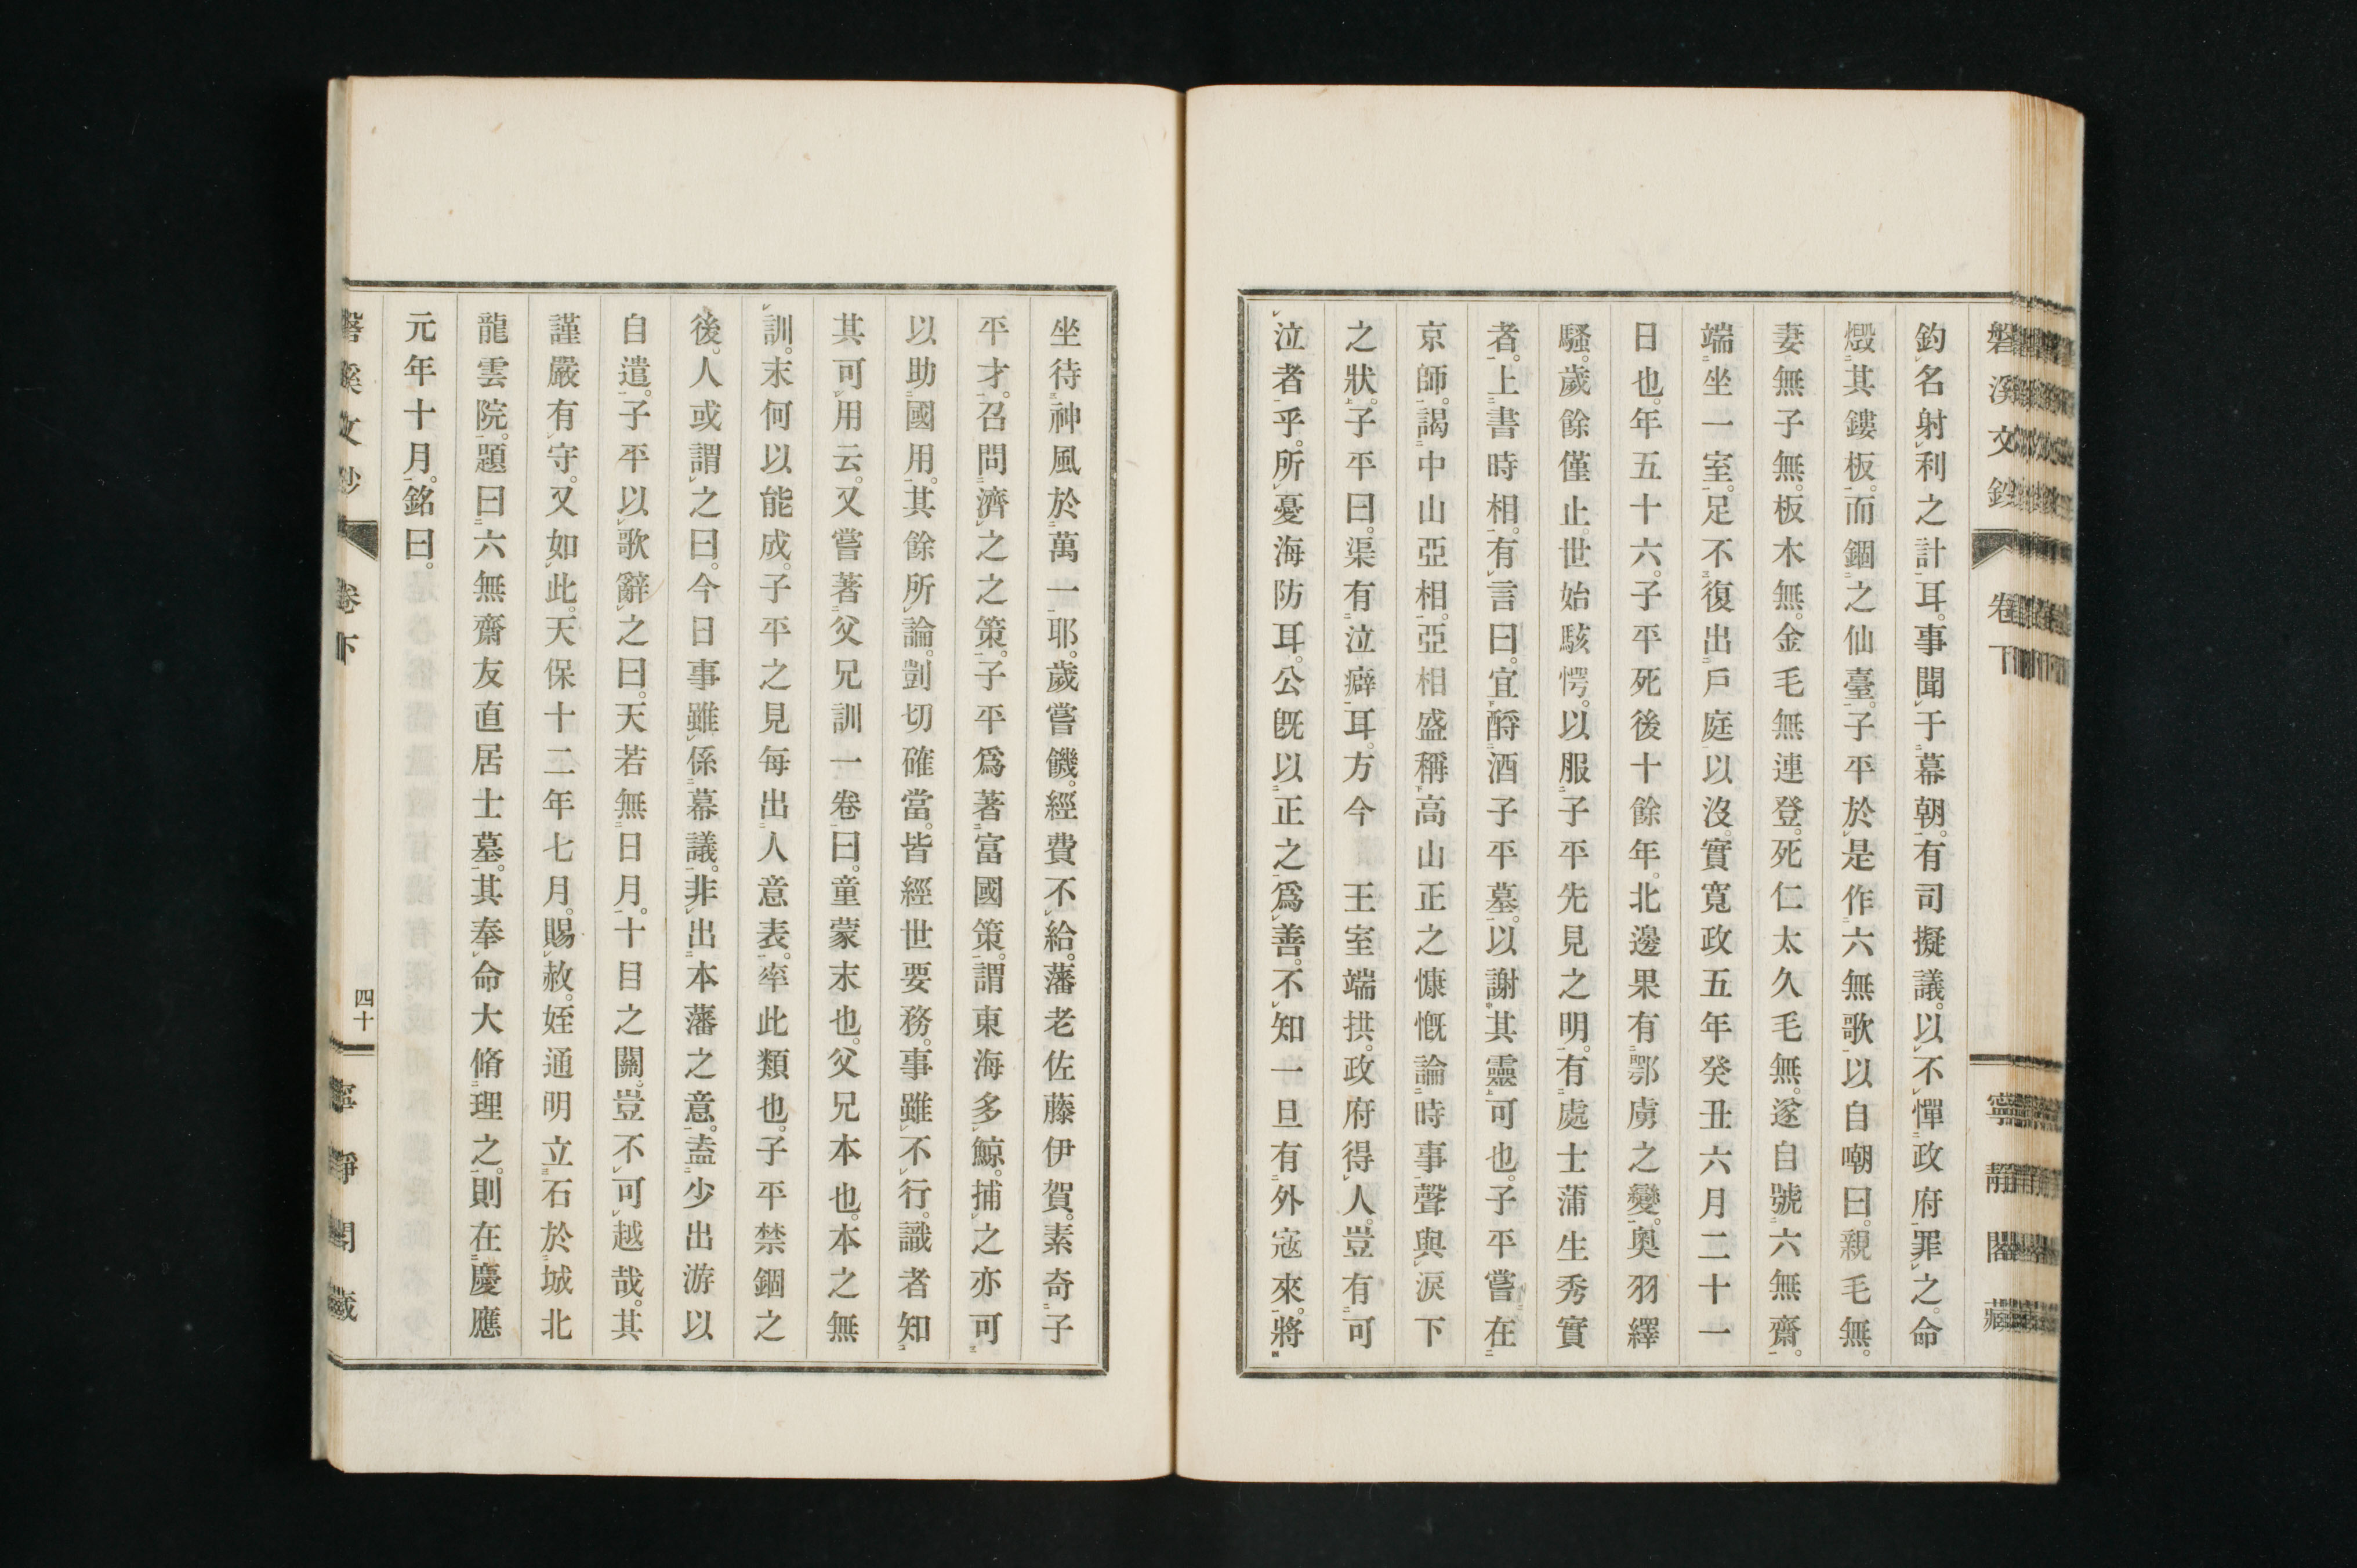 磐溪文鈔 卷下 寧靜閣藏
釣名射利之計耳。事聞于幕朝。有司擬議。以不憚政府罪之。命
燬其鏤板。而錮之仙臺。子平於是作六無歌以自嘲曰。親毛無。
妻無子無。板木無。金毛無連登。死仁太久毛無。遂自號六無齋。
端坐一室。足不復出戶庭以沒。實寬政五年癸丑六月二十一
日也。年五十六。子平死後十餘年。北邊果有鄂虜之變。奧羽繹
騷。歲餘僅止。世始駭愕。以服子平先見之明。有處士蒲生秀實
者。上書時相。有言曰。宜酹酒子平墓。以謝其靈可也。子平嘗在
京師。謁中山亞相。亞相盛稱高山正之慷慨論時事。聲與淚下
之狀。子平曰。渠有泣癖耳。方今 王室端拱。政府得人。豈有可
泣者乎。所憂海防耳。公旣以正之爲善。不知一旦有外寇來。將
坐待神風於萬一耶。歲嘗饑。經費不給。藩老佐藤伊賀。素奇子
平才。召問濟之之策。子平爲著富國策。謂東海多鯨。捕之亦可
以助國用。其餘所論。剴切確當。皆經世要務。事雖不行。識者知
其可用云。又嘗著父兄訓一卷曰。童蒙末也。父兄本也。本之無
訓。末何以能成。子平之見每出人意表。率此類也。子平禁錮之
後。人或謂之曰。今日事雖係幕議。非出本藩之意。盍少出游以
自遣。子平以歌辭之曰。天若無日月。十目之關。豈不可越哉。其
謹嚴有守。又如此。天保十二年七月。賜赦。姪通明立石於城北
龍雲院。題曰六無齋友直居士墓。其奉命大脩理之。則在慶應
元年十月。銘曰。
磐溪文鈔 卷下 四十 寧靜閣藏